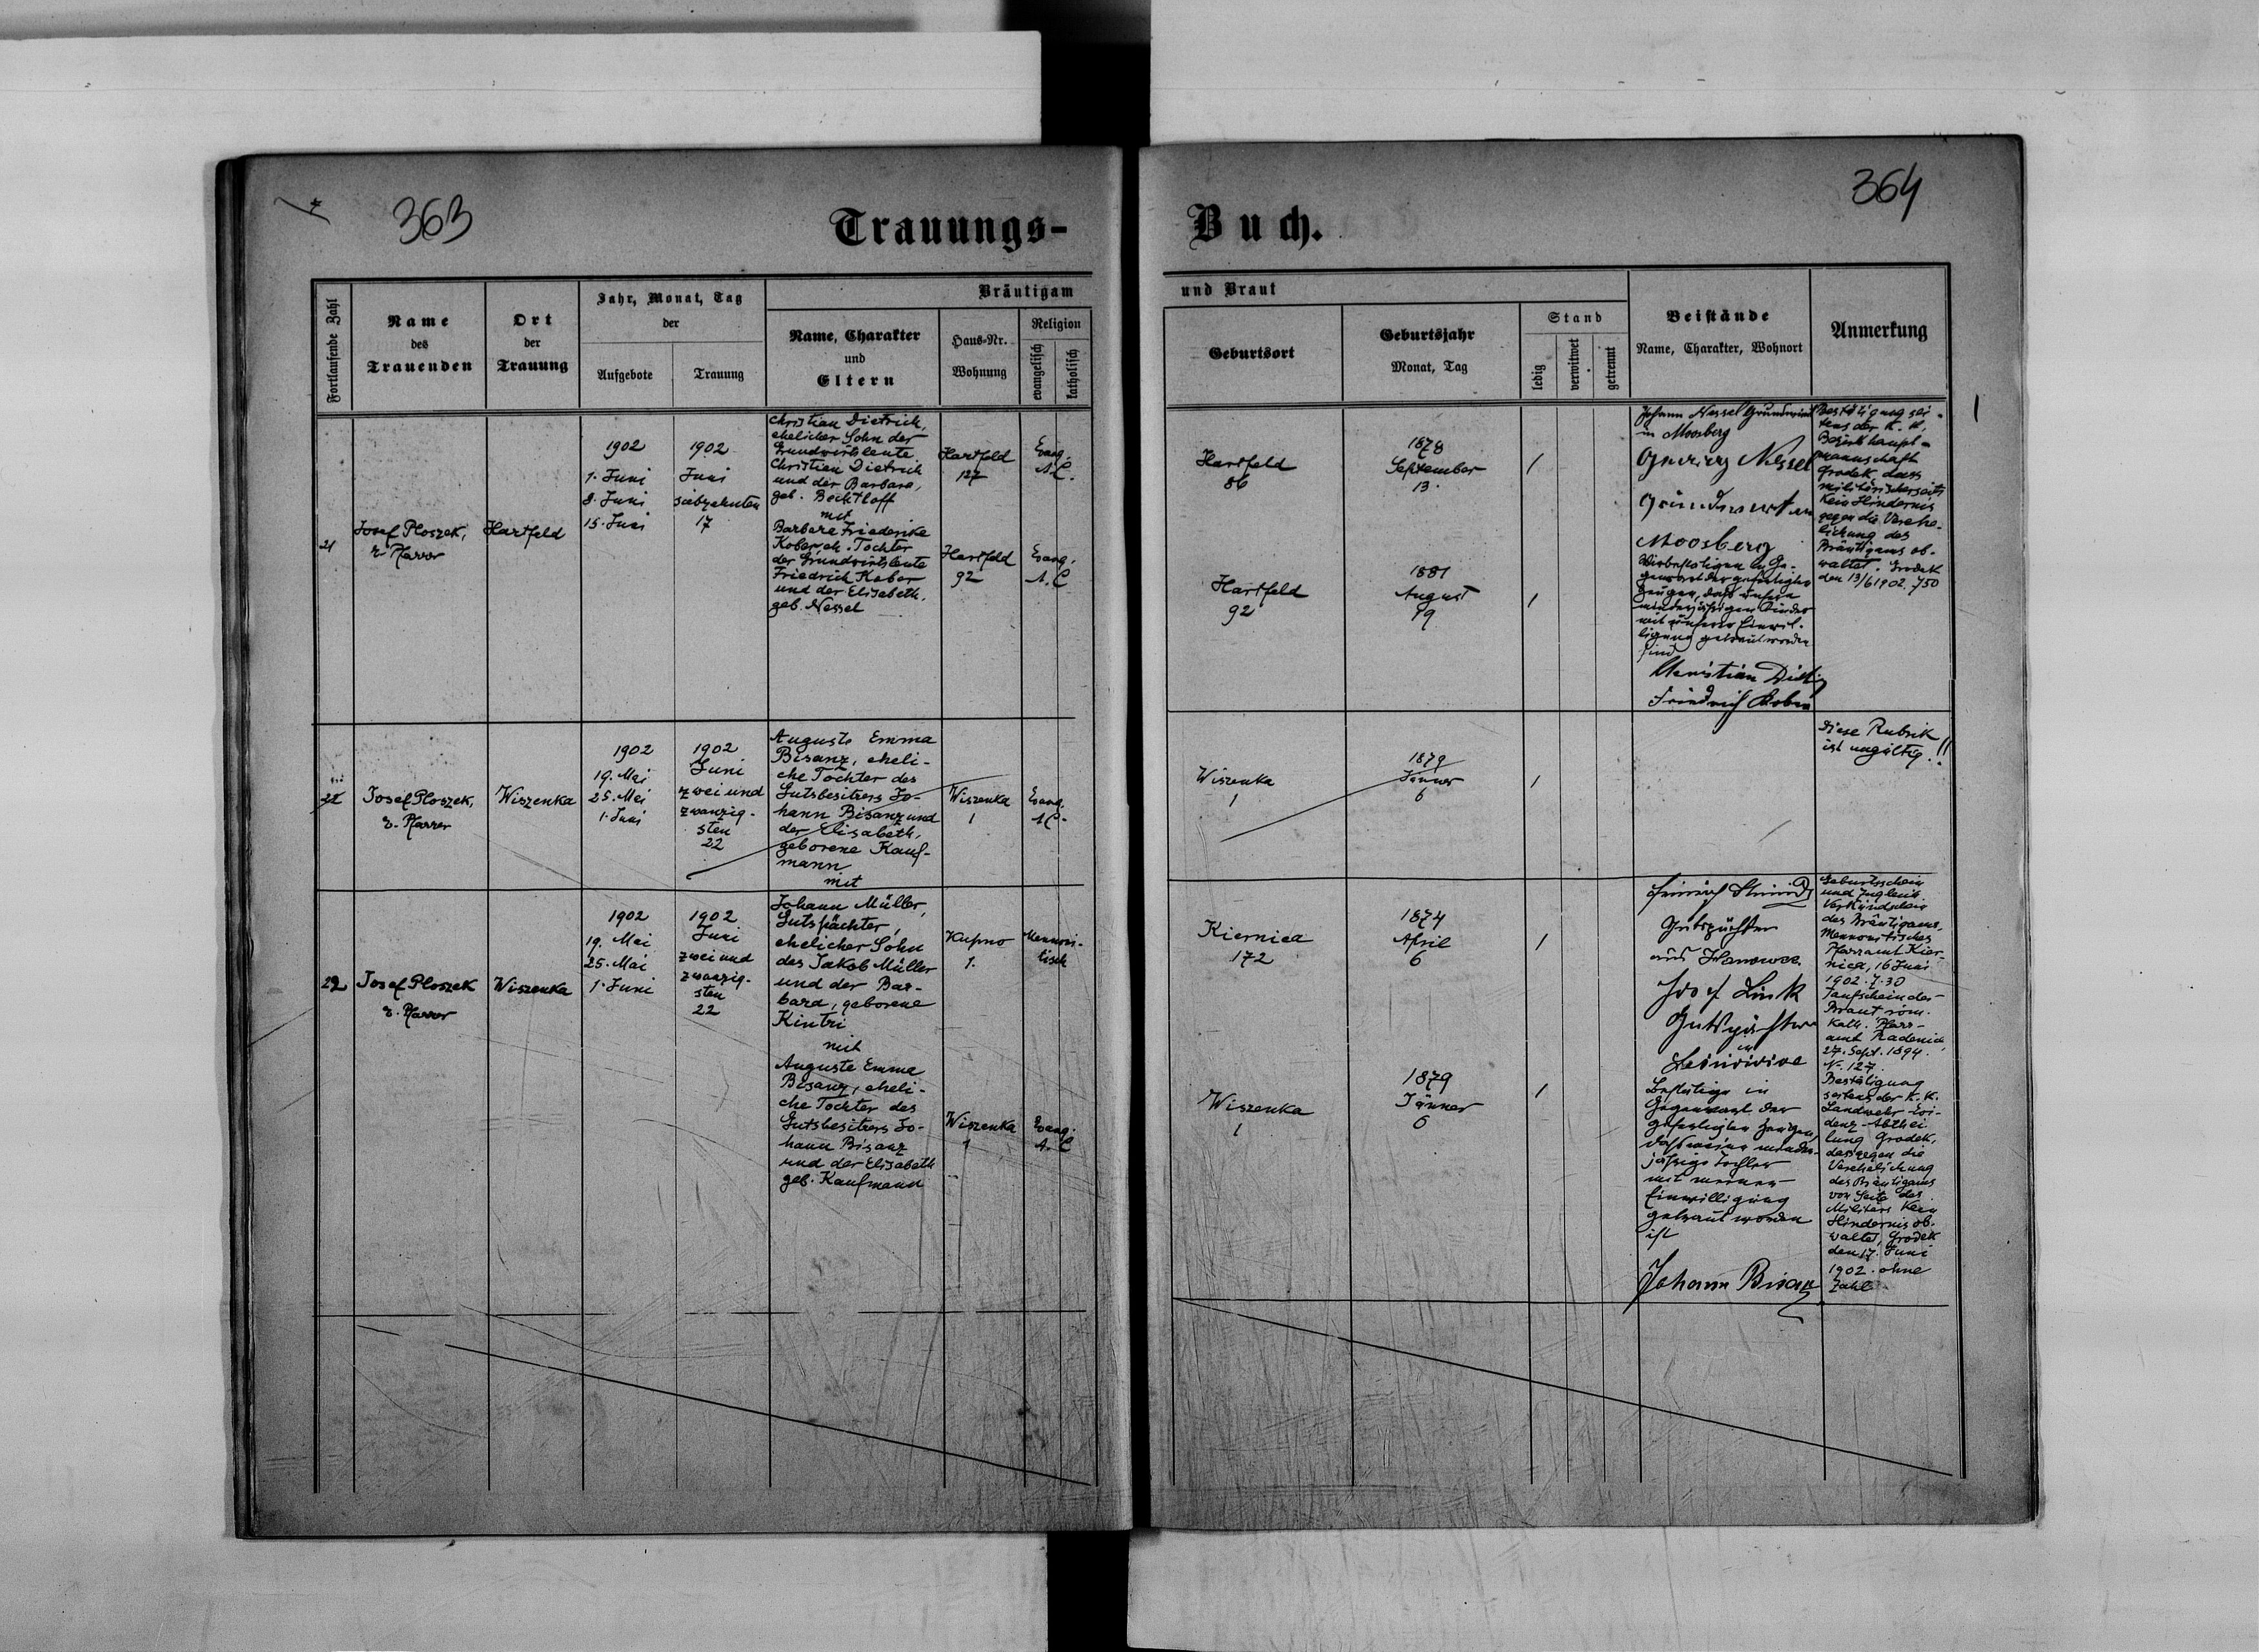 363
Trauungs-
Fortlaufende Zahl
Name
des
Trauenden
Ort
der
Trauung
Jahr, Monat, Tag
der
Aufgebote
Trauung
Bräutigam
Name, Charakter
und
Eltern
Haus-Nr.
Wohnung
Religion
evangelisch
katholisch
21
Josef Ploszek,
e. Pfarrer
Hartfeld
1902
1. Juni
8. Juni
15. Juni
1902
Juni
siebzehnten
17
Christian Dietrich,
ehelicher Sohn der
Grundwirtsleute
Christian Dietrich
und der Barbara,
geb. Bechtloff
mit
Barbara Friederike
Kober, eh. Tochter
der Grundwirtsleute
Friedrich Kober
und der Elisabeth,
geb. Nessel
Hartfeld
127
Hartfeld
92
Evang.
A.C.
Evang.
A.C
22
Josef Ploszek,
e. Pfarrer
Wiszenka
1902
19. Mai
25. Mai
1. Juni
1902
Juni
zwei und
zwanzig-
sten
22
Auguste Emma
Bisanz, eheli-
che Tochter des
Gutsbesitzers Jo-
hann Bisanz und
der Elisabeth,
geborene Kauf-
mann
mit
Wiszenka
1
Evang.
A.C.
22
Josef Ploszek
e. Pfarrer
Wiszenka
1902
19. Mai
25. Mai
1. Juni
1902
Juni
zwei und
zwanzig-
sten
22
Johann Müller,
Gutspächter,
ehelicher Sohn
des Jakob Müller
und der Bar-
bara, geborene
Kintzi
mit
Auguste Emma
Bisanz, eheli-
che Tochter des
Gutsbesitzers Jo-
hann Bisanz
und der Elisabeth
geb. Kaufmann
1.
Wiszenka
1
Mennoni-
tisch
Evang.
A.C
364
Buch.
und Braut
Geburtsort
Geburtsjahr
Monat, Tag
Stand
ledig
verwitwet
getrennt
Beistände
Name, Charakter, Wohnort
Anmerkung
Hartfeld
86
1878
September
13.
Hartfeld
92
1881
August
19
Johann Nessel Grundwirt
in Moosberg
Nessel
Moosberg
Wir bestätigen in Ge-
genwart der gefertigten
Zeugen, daß unsere
minderjährigen Kinder
mit unserer Einwil-
ligung getraut worden
sind
Christian
Friedrich Kober
Bestätigung sei-
tens der K. K.
Bezirkhaupt-
mannschaft
Grodek, dass
militärischerseits
kein Hindernis
gegen die Verehe-
lichung des
Bräutigams ob-
waltet. Grodek
den 13/6 1902. 750
Wiszenka
1
1879
Jänner
6
Diese Rubrik
ist ungültig!!
Kiernica
172
1874
April
6
Wiszenka
1
1879
Jänner
6
Heinrich
Gutspächter
aus
Josef Link
Gutspächter
in
Bestätige in
Gegenwart der
gefertigten Zeugen,
daß meine minder-
jährige Tochter
mit meiner
Einwilligung
getraut worden
ist
Johann Bisanz
Geburtsschein
und zugleich
Verkündschein
des Bräutigams,
Mennonitisches
Pfarramt Kier-
nica, 16 Juni
1902. Z. 30
Taufschein der
Braut röm.
kath. Pfarr-
amt
27. Sept. 1894.
N. 127.
Bestätigung
seitens der K. K.
Landwehr-Evi-
denz-Abthei
lung Grodek,
dass gegen die
Verehelichung
des Bräutigams
von Seite des
Militärs kein
Hindernis ob-
waltet, Grodek
den 17. Juni
1902. ohne
Zahl